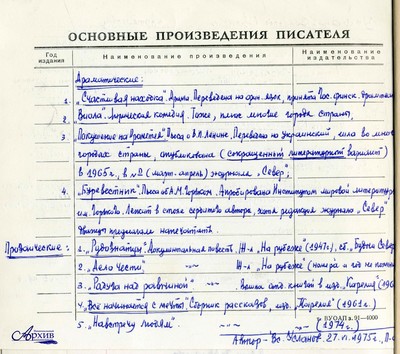 ОСНОВНЫЕ ПРОИЗВЕДЕНИЯ ПИСАТЕЛЯ
Год издания Наименование произведения Наименование издательства
Драматические:
1. „Счастливая находка". Драма. Переведена на фин. язык, принята Гос. финск. драмтеатром
2. Виола". Лирическая комедия. Тоже, плюс многие города страны.
3. „Покушение на Прометея". Пьеса о В.И. Ленине. Переведена на украинский, шла во многих
городах страны, опубликована (сокращенный литературный вариант)
в 1965 г., в №2 (март-апрель) журнала „Север";
4. „Буревестник". Пьеса об А.М. Горьком. Апробирована Институтом мировой литературы
им. Горького. Лежит в столе сердитого автора, хотя редакция журнала „Север"
дважды предлагала напечатать.
Прозаические: 1. „Рудознатцы". Документальная повесть. Ж-л „На рубеже" (1947 г.), сб.
2. „Дело чести" —"— Ж-л „На рубеже" (номера и год не помню
3. „Радуга над равниной" —"— Вышла отд. книгой в изд. „Карелия" (196
4. „Все начинается с мечты" Сборник рассказов, изд. „Карелия" (1961 г.)
5. „Навстречу людям". —"— —"— (1974 г.)
ВУОАП з. 91—4000
Автор - Во. Усланов. 27.VI.1975 г.,
Архив